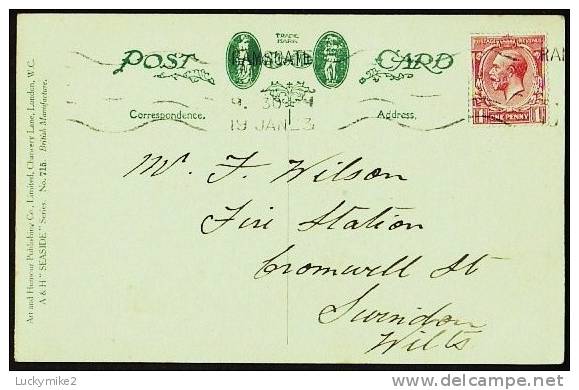 TRADE
MARK
POST CARD
RAMSGATE
RAM
POSTAGE REVENUE
ONE PENNY
Correspondence.
Address.
9. 30
19 JAN 23
Mr. F. Wilson
Fire Station
Cromwell St
Swindon
Wilts
Art and Humour Publishing Co., Limited, Chancery Lane, London, W.C.
A & H "SEASIDE" Series. No. 715. British Manufacture.
Luckymike2
delcampe.net